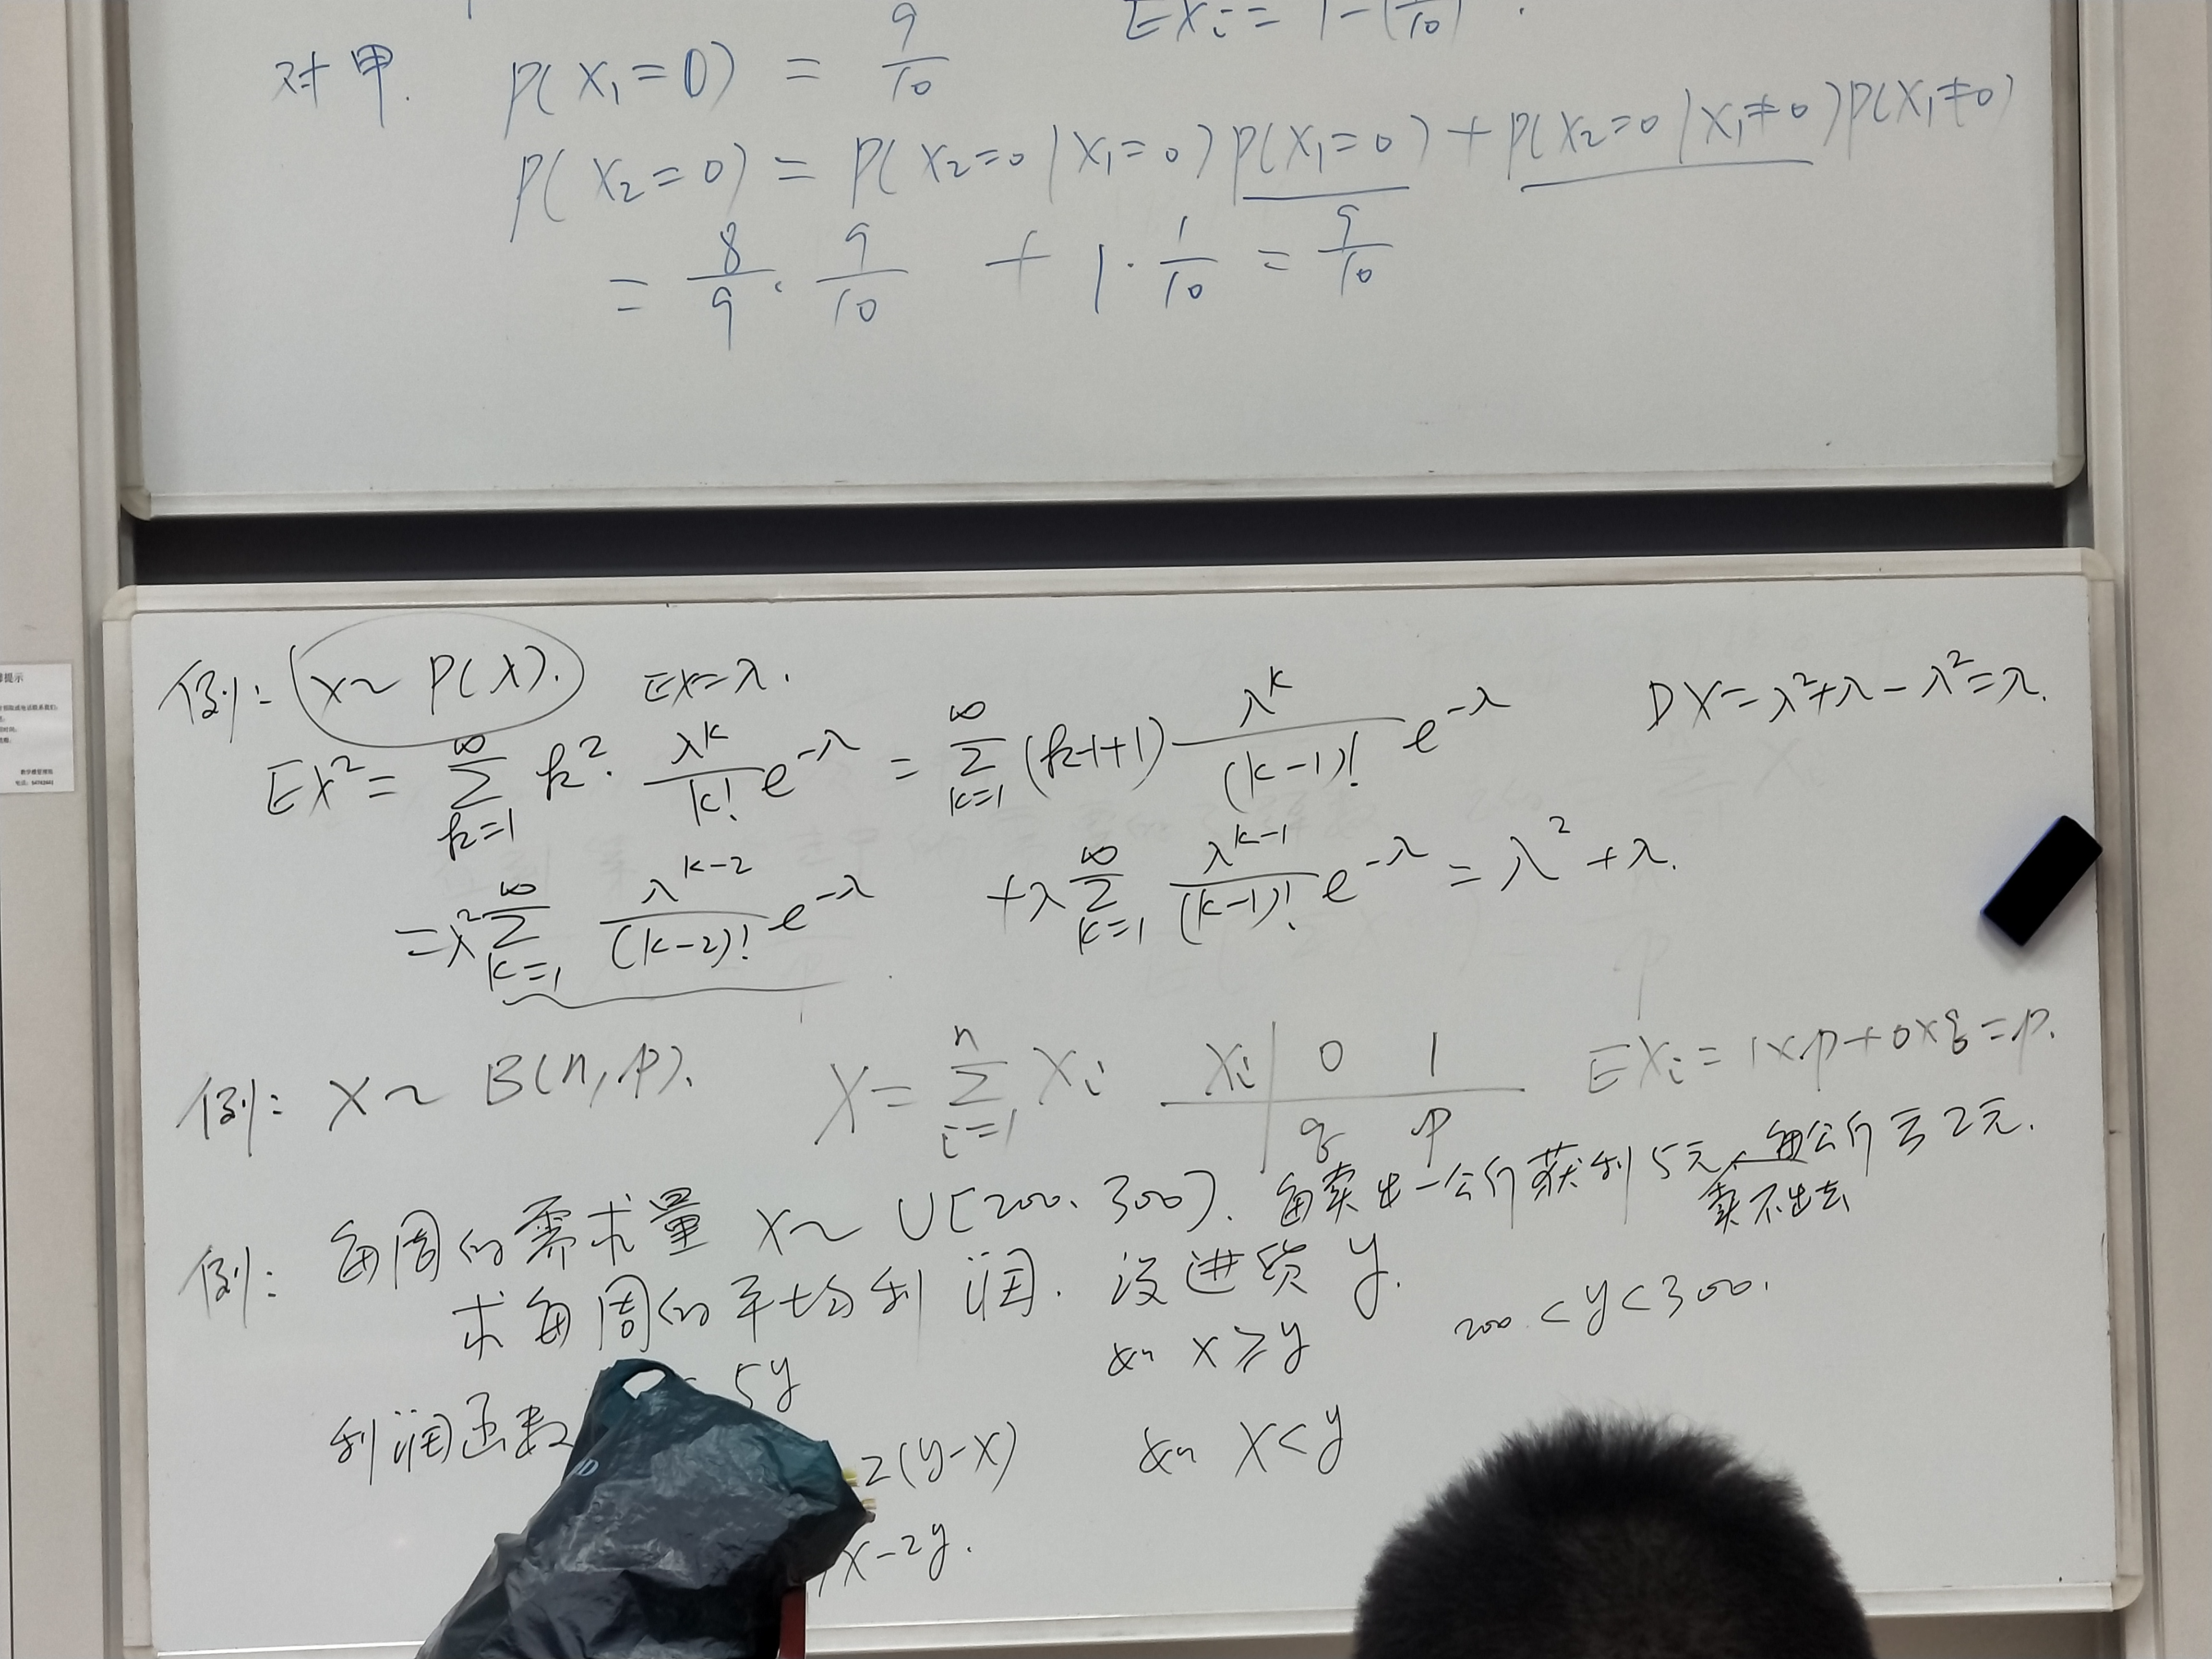 对甲. P(X₁=0) = 9/10
P(X₂=0) = P(X₂=0|X₁=0)P(X₁=0)+P(X₂=0|X₁≠0)P(X₁≠0)
= 8/9 · 9/10 + 1 · 1/10 = 9/10
例: X~P(λ). EX=λ. DX=λ²+λ-λ²=λ.
EX²= ∑_{k=1}^{∞} k² · λ^k/k! e^{-λ} = ∑_{k=1}^{∞} (k-1+1) λ^k/(k-1)! e^{-λ}
=λ² ∑_{k=1}^{∞} λ^{k-2}/(k-2)! e^{-λ} +λ ∑_{k=1}^{∞} λ^{k-1}/(k-1)! e^{-λ} = λ²+λ.
例: X~B(n,p). X= ∑_{i=1}^{n} Xi Xi | 0 1 EXi=1×p+0×q=p.
q p
例: 每周的需求量 X~U[200, 300]. 每卖出一公斤获利5元, 每公斤亏2元.
卖不出去
求每周的平均利润. 设进货 y. 200<y<300.
利润函数 5y X≥y
2(y-X) X<y
X-2y.